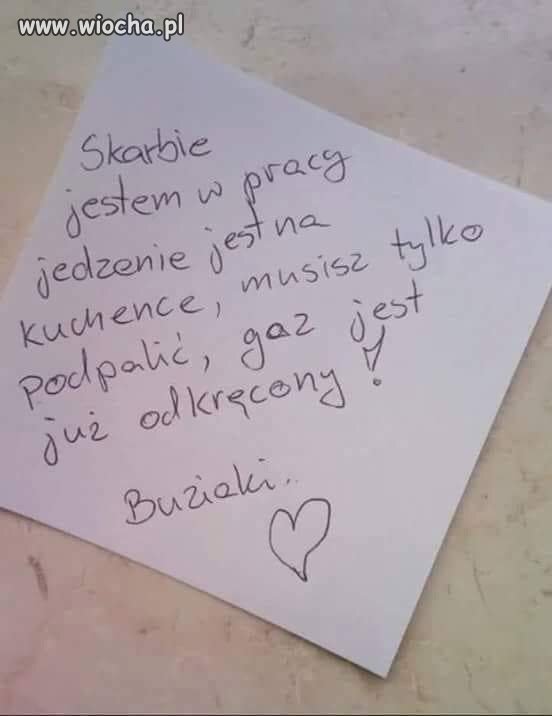 www.wiocha.pl
Skarbie
jestem w pracy
jedzenie jest na
kuchence, musisz tylko
podpalić, gaz jest
już odkręcony!
Buziaki..